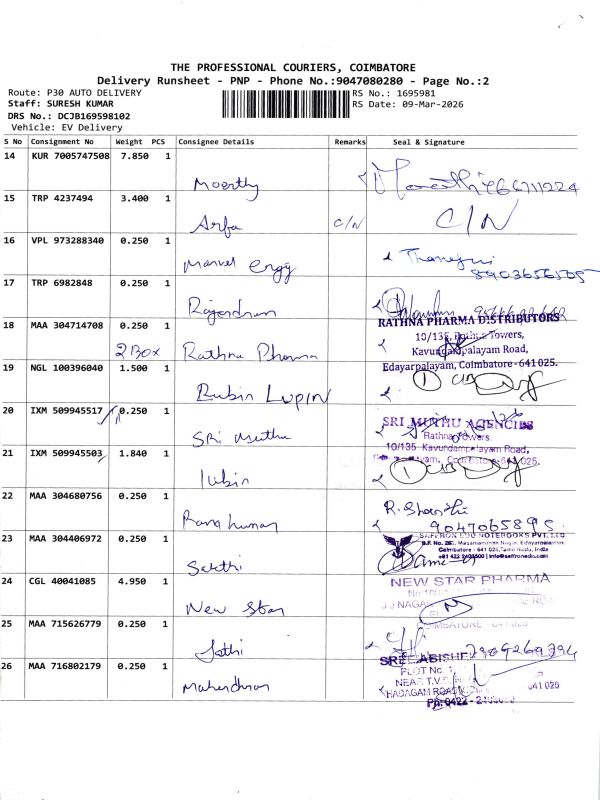 THE PROFESSIONAL COURIERS, COIMBATORE
Delivery Runsheet - PNP - Phone No.:9047080280 - Page No.:2
Route: P30 AUTO DELIVERY
RS No.: 1695981
Staff: SURESH KUMAR
RS Date: 09-Mar-2026
DRS No.: DCJB169598102
Vehicle: EV Delivery
S No Consignment No Weight PCS Consignee Details Remarks Seal & Signature
14 KUR 7005747508 7.850 1
Moorthy
15 TRP 4237494 3.400 1
Arfa C/N C/N
16 VPL 973288340 0.250 1
Marvel Engg
8903656505
17 TRP 6982848 0.250 1
Rajendran
18 MAA 304714708 0.250 1
RATHNA PHARMA DISTRIBUTORS
10/135, Rathna Towers,
2 Box Rathna Pharma
Kavundampalayam Road,
Edayarpalayam, Coimbatore - 641 025.
19 NGL 100396040 1.500 1
Rubin LUPIN
20 IXM 509945517 0.250 1
SRI MUTHU AGENCIES
Rathna Towers
SRi Muthu
10/135 Kavundampalayam Road,
21 IXM 509945503 1.840 1
641 025.
lubin
22 MAA 304680756 0.250 1
R. Shanthi
Ramkumar
9047065895
23 MAA 304406972 0.250 1
SAFFRON EDU NOTEBOOKS PVT. LTD
Coimbatore - 641 025, Tamil Nadu, India
Sakthi
24 CGL 40041085 4.950 1
NEW STAR PHARMA
New Star
COIMBATORE - 641 025
25 MAA 715626779 0.250 1
Jothi
SREE ABISHE
26 MAA 716802179 0.250 1
PLOT No.
NEAR T.V.S.
641 025
Mahendran
Ph: 0422 -